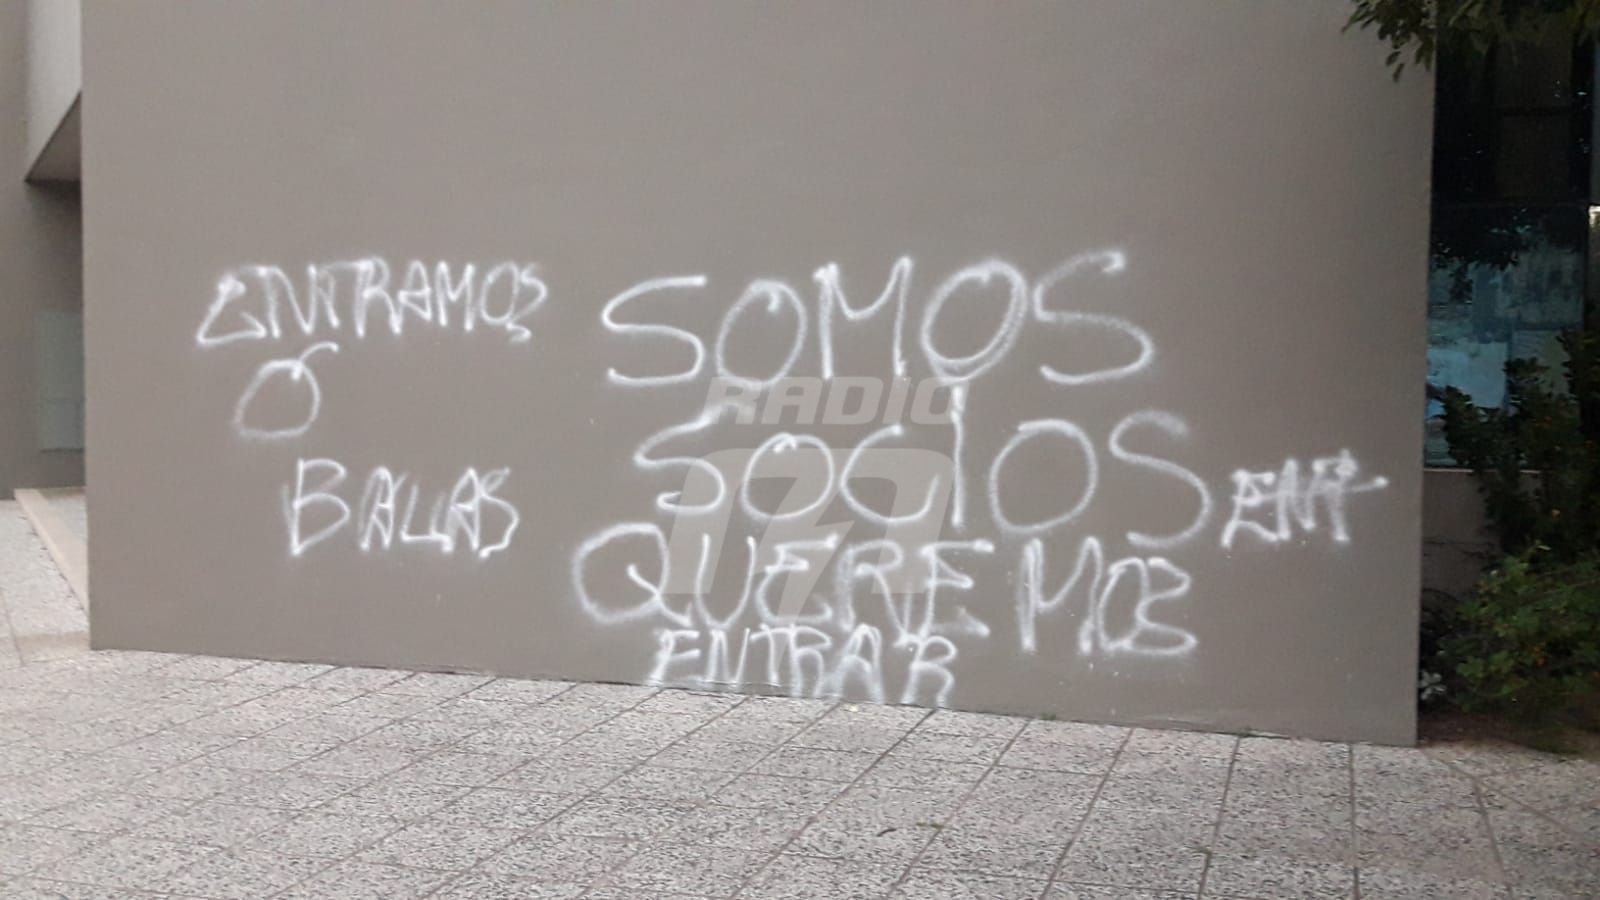 ENTRAMOS
O
BALAS
SOMOS
SOCIOS ENT
QUEREMOS
ENTRAR
RADIO